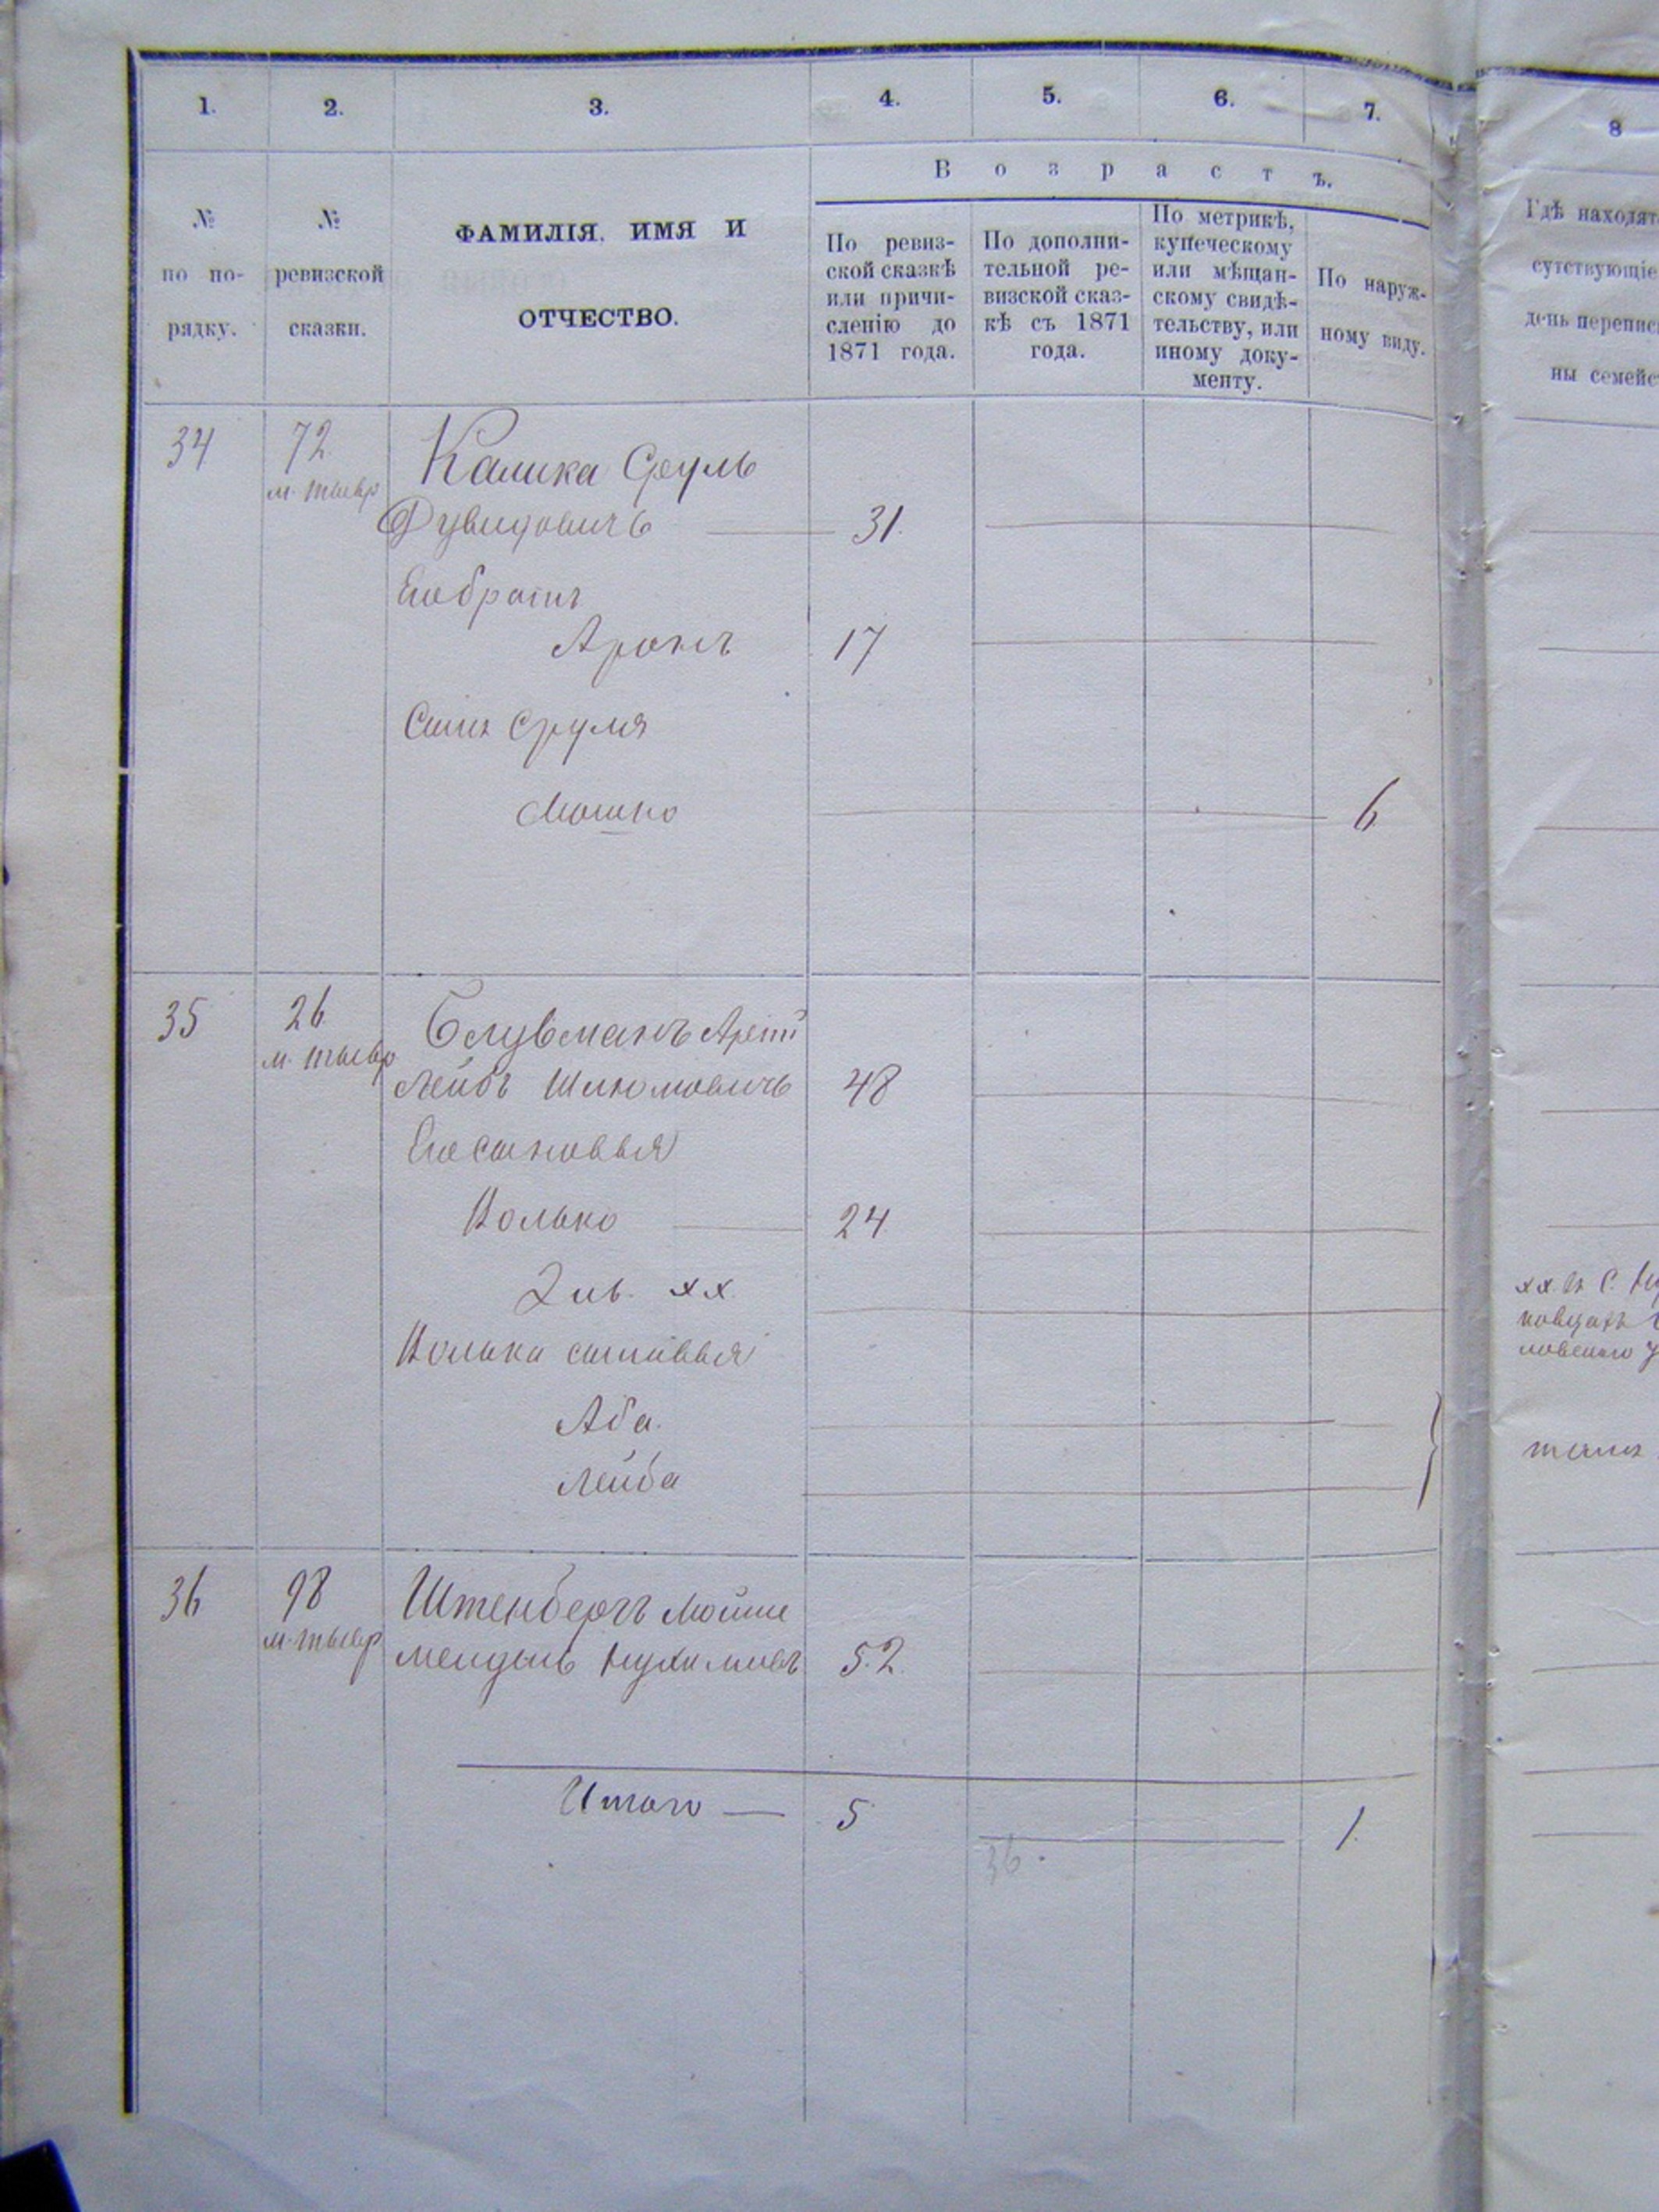 1. 2. 3. 4. 5. 6. 7. 8
Возрастъ.
№ по по-рядку.
№ ревизской сказки.
ФАМИЛІЯ, ИМЯ И
ОТЧЕСТВО.
По ревиз-
ской сказкѣ
или причи-
сленію до
1871 года.
По дополни-
тельной ре-
визской сказ-
кѣ съ 1871
года.
По метрикѣ,
купеческому
или мѣщан-
скому свидѣ-
тельству, или
иному доку-
менту.
По наруж-
ному виду.
Гдѣ находят
сутствующіе
день перепис
ны семейс
34 72 Калика Сруль
м. тывр
Дувидовичъ 31.
Его братъ
Аронъ 17
Сынъ Сруля
Мошко 6
35 26 Блувманъ
м. тывр Лейбъ Шлиомовичъ 48
Его сыновья
Волько 24
хх.
хх. въ С.
Волька сыновья
Аба.
Лейба
36 98 Штенбергъ Мойше
м. тывр Мендель Нухимовъ 52.
Итого — 5 1.
36.